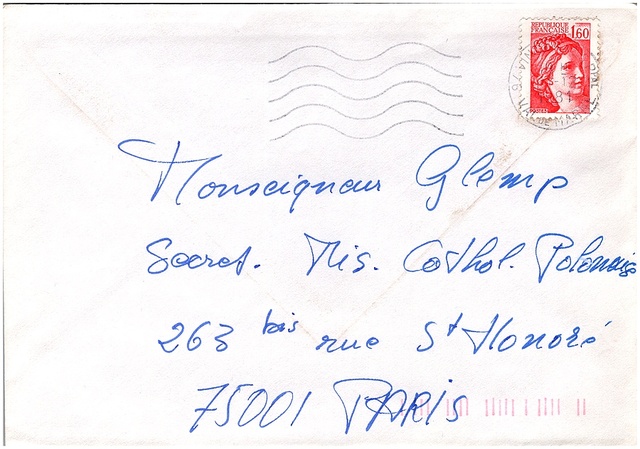 REPUBLIQUE
FRANÇAISE 1,60
Monseigneur Glemp
Secret. Mis. Cathol. Polonaise
263 bis rue St Honoré
75001 PARIS